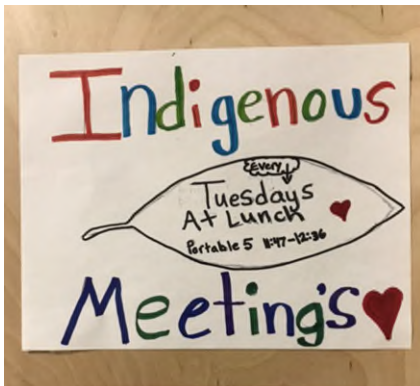 Indigenous
Every
Tuesdays
At Lunch
Portable 5 11:47-12:36
Meeting's